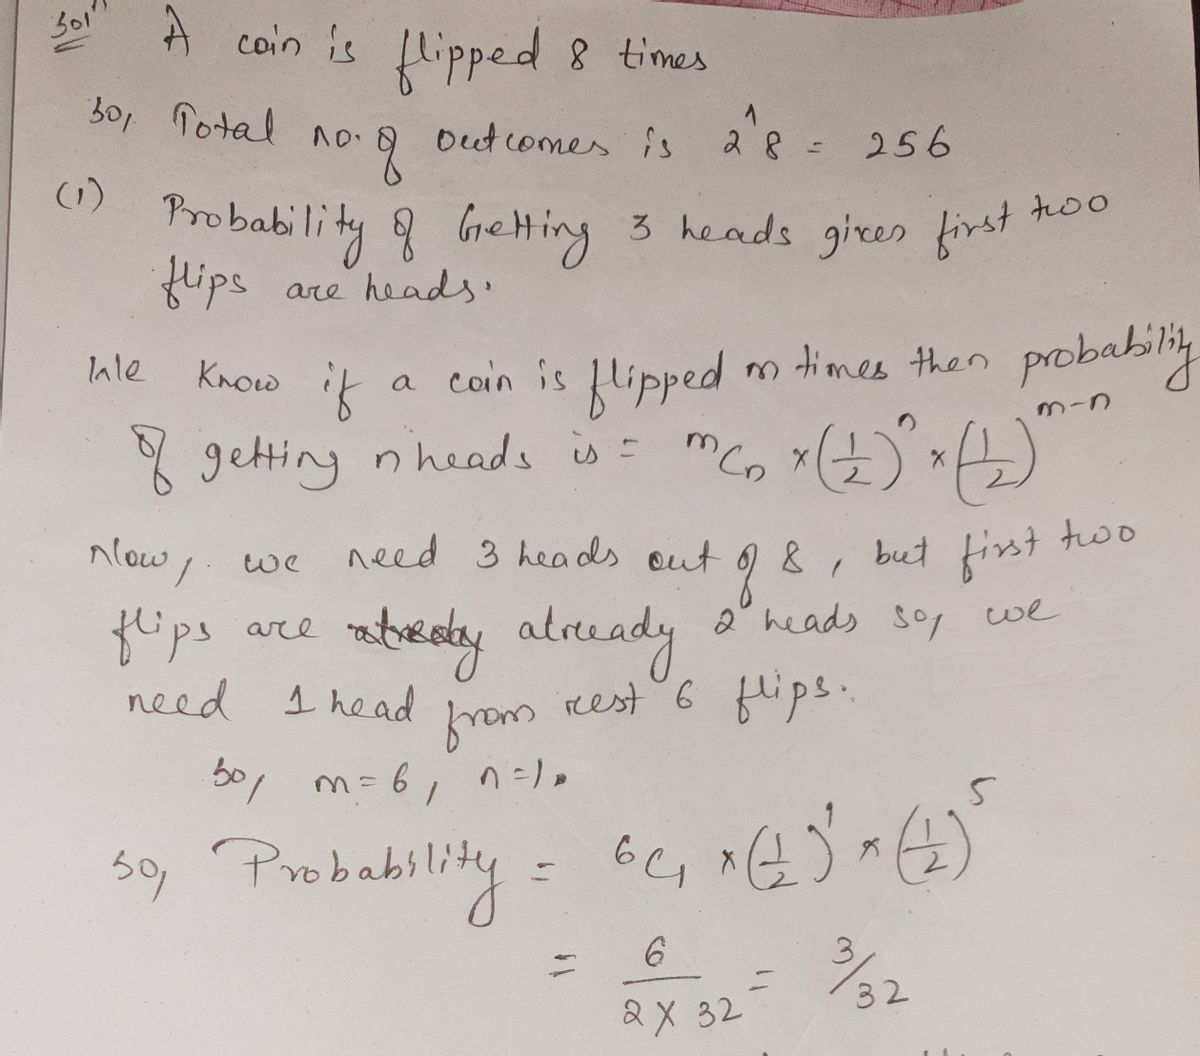 Solⁿ A coin is flipped 8 times
So, Total no. of outcomes is 2^8 = 256
(1) Probability of Getting 3 heads given first two
flips are heads.
We Know if a coin is flipped m times then probability
of getting n heads is = ᵐCₙ × (1/2)ⁿ × (1/2)ᵐ⁻ⁿ
Now, we need 3 heads out of 8, but first two
flips are already 2 heads so, we
need 1 head from rest 6 flips.
So, m=6, n=1.
So, Probability = ⁶C₁ × (1/2)¹ × (1/2)⁵
= 6/(2 × 32) = 3/32